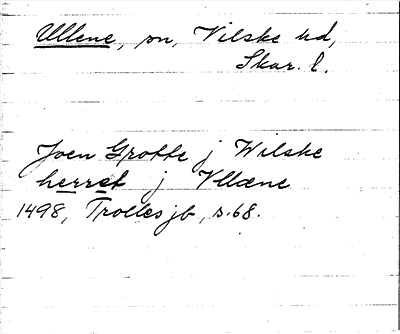 Ullene, sn, Vilske hd,
Skar. l.
Joen Grotte j Wilske
herret j Vllæne
1498, Trolles jb, s. 68.